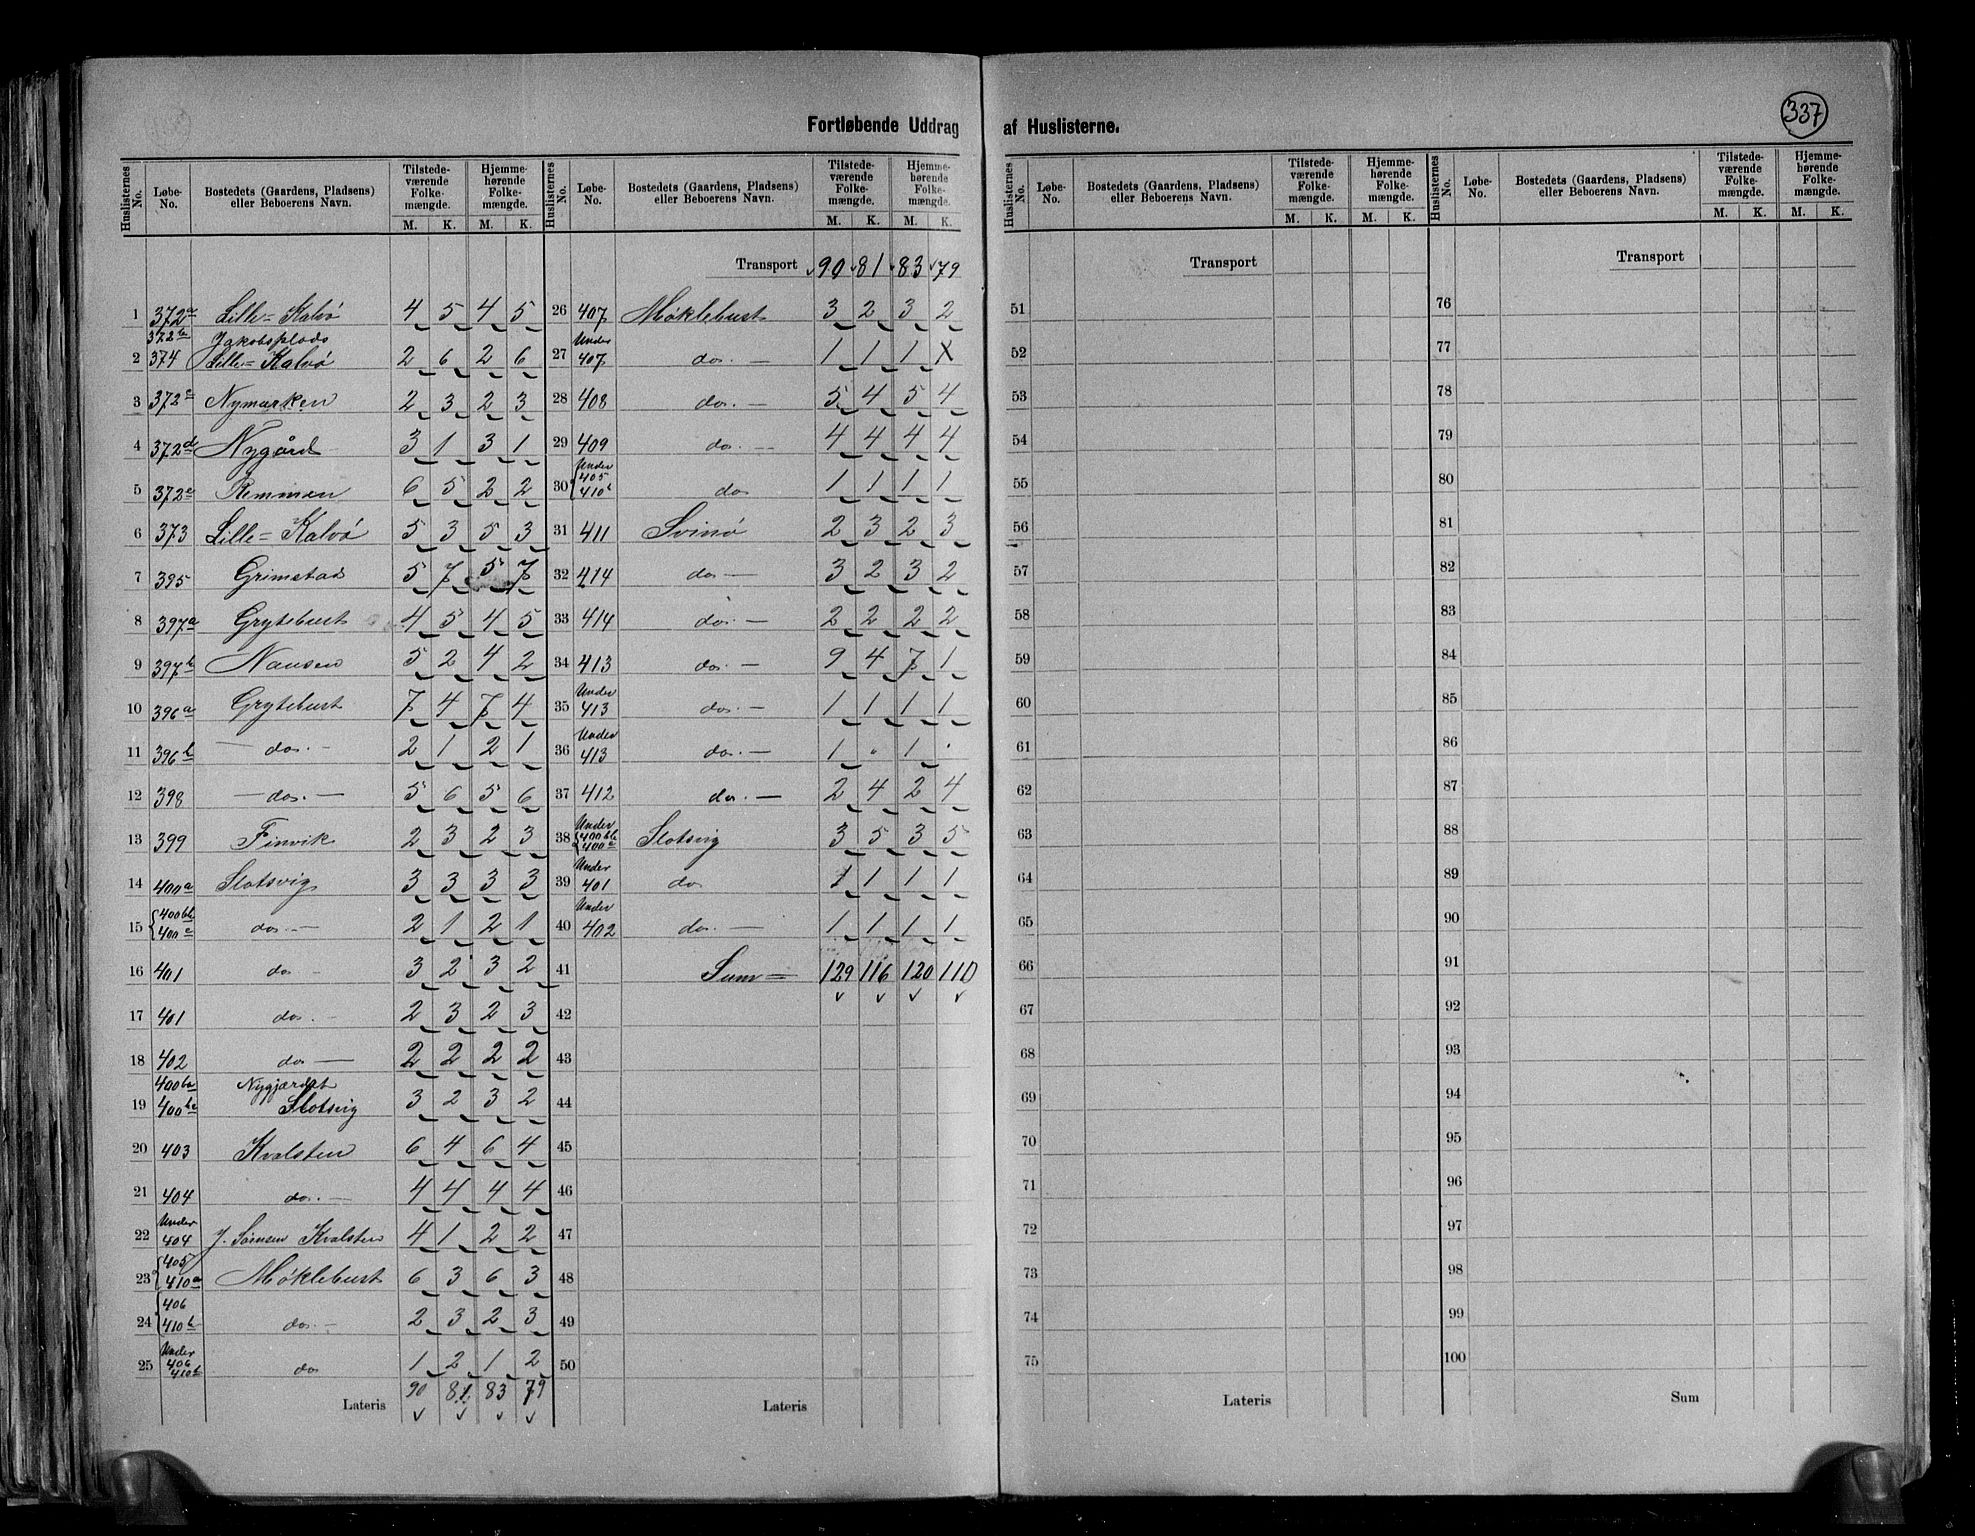 337
Fortløbende Uddrag af Huslisterne.
Huslisternes No. Løbe-No. Bostedets (Gaardens, Pladsens) eller Beboerens Navn. Tilstede-værende Folke-mængde. M. K. Hjemme-hørende Folke-mængde. M. K.
1 372a Lille-Kalvø 4 5 4 5
372b Jakobsplads
2 374 Lille-Kalvø 2 6 2 6
3 372c Nymarken 2 3 2 3
4 372d Nygård 3 1 3 1
5 372e Remman 6 5 2 2
6 373 Lille-Kalvø 5 3 5 3
7 395 Grimstad 5 7 5 7
8 397a Grytebust 4 5 4 5
9 397b Nausen 5 2 4 2
10 396a Grytebust 7 4 7 4
11 396b - do. - 2 1 2 1
12 398 - do. - 5 6 5 6
13 399 Finvik 2 3 2 3
14 400a Slotsvig 3 3 3 3
15 {400bb 400c do. - 2 1 2 1
16 401 do - 3 2 3 2
17 401 do. - 2 3 2 3
18 402 do - 2 2 2 2
400ba Nygjærdet
19 400bc Slotsvig 3 2 3 2
20 403 Kvalsten 6 4 6 4
21 404 do. - 4 4 4 4
Under
22 404 J. Sørnsen Kvalsten 4 1 2 2
23 {405 410a Møklebust 6 3 6 3
24 {406 410b do. - 2 3 2 3
Under
25 406 410b do 1 2 1 2
Lateris 90 81 83 79
Huslisternes No. Løbe-No. Bostedets (Gaardens, Pladsens) eller Beboerens Navn. Tilstede-værende Folke-mængde. M. K. Hjemme-hørende Folke-mængde. M. K.
Transport 90 81 83 79
26 407 Møklebust 3 2 3 2
Under
27 407 do. - 1 1 1 X
28 408 do. - 5 4 5 4
29 409 do. - 4 4 4 4
Under
30 {405 410b do 1 1 1 1
31 411 Svinø 2 3 2 3
32 414 do - 3 2 3 2
33 414 do. - 2 2 2 2
34 413 do. - 9 4 7 1
Under
35 413 do. - 1 1 1 1
Under
36 413 do. - 1 " 1 "
37 412 do. - 2 4 2 4
Under
38 {400bb 400c Slotsvig 3 5 3 5
Under
39 401 do 1 1 1 1
Under
40 402 do. - 1 1 1 1
41 Sum = 129 116 120 110
42
43
44
45
46
47
48
49
50
Lateris
Huslisternes No. Løbe-No. Bostedets (Gaardens, Pladsens) eller Beboerens Navn. Tilstede-værende Folke-mængde. M. K. Hjemme-hørende Folke-mængde. M. K.
Transport
51
52
53
54
55
56
57
58
59
60
61
62
63
64
65
66
67
68
69
70
71
72
73
74
75
Lateris
Huslisternes No. Løbe-No. Bostedets (Gaardens, Pladsens) eller Beboerens Navn. Tilstede-værende Folke-mængde. M. K. Hjemme-hørende Folke-mængde. M. K.
Transport
76
77
78
79
80
81
82
83
84
85
86
87
88
89
90
91
92
93
94
95
96
97
98
99
100
Sum